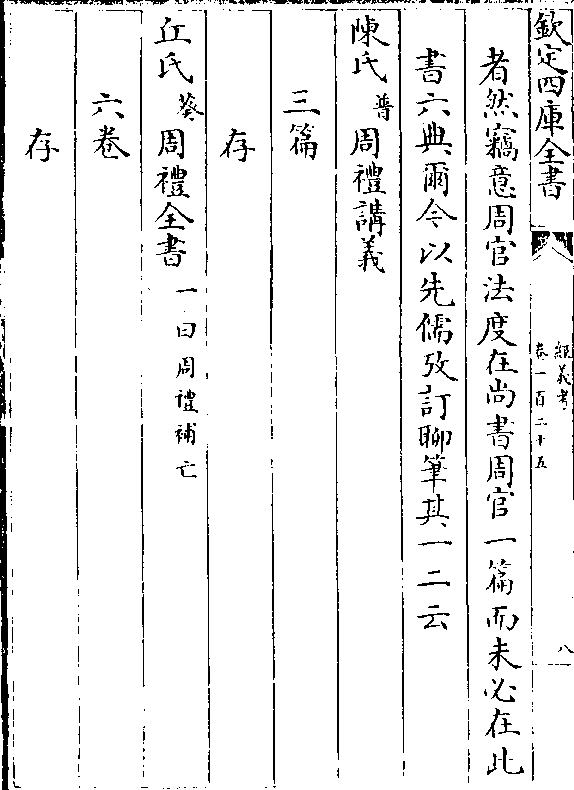 欽定四庫全書
經義考
卷一百二十五
八
者然竊意周官法度在尚書周官一篇而未必在此
書六典爾今以先儒攷訂聊筆其一二云
陳氏普周禮講義
三篇
存
丘氏葵周禮全書一曰周禮補亡
六卷
存